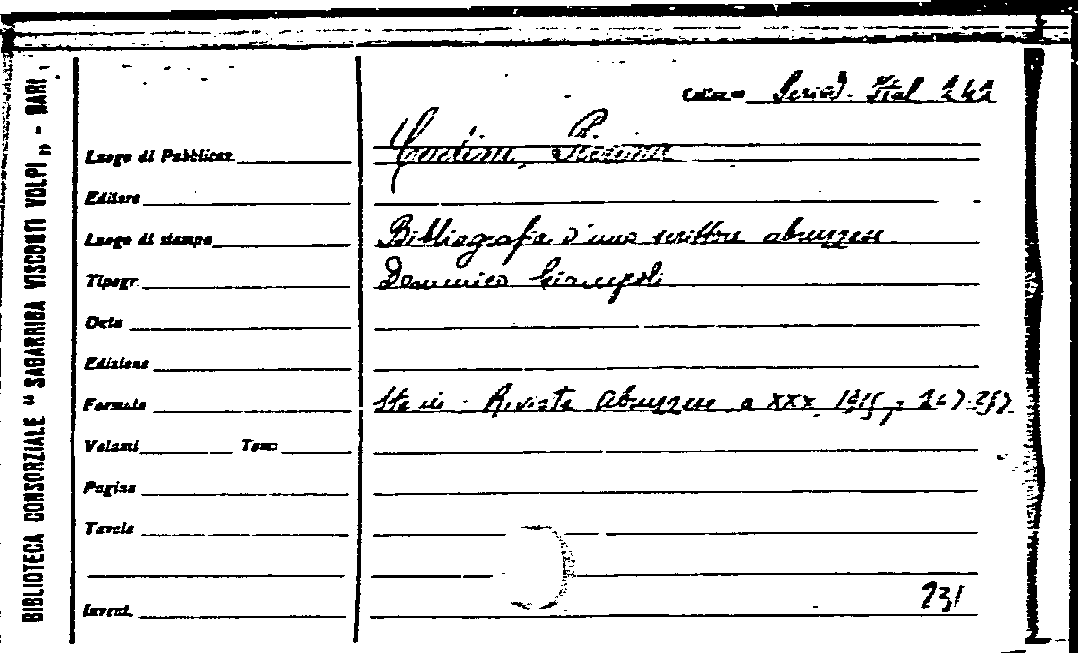 BIBLIOTECA CONSORZIALE "SAGARRIGA VISCONTI VOLPI" - BARI
Colloc.ne Period. Ital 242
Luogo di Pubblicaz.
Editore
Luogo di stampa
Bibliografia d'uno scrittore abruzzese
Tipogr.
Domenico Ciampoli
Data
Edizione
Formato
Sta in - Rivista Abruzzese a XXX 1915, p 247-257
Volumi Tomi
Pagine
Tavole
Invent.
231